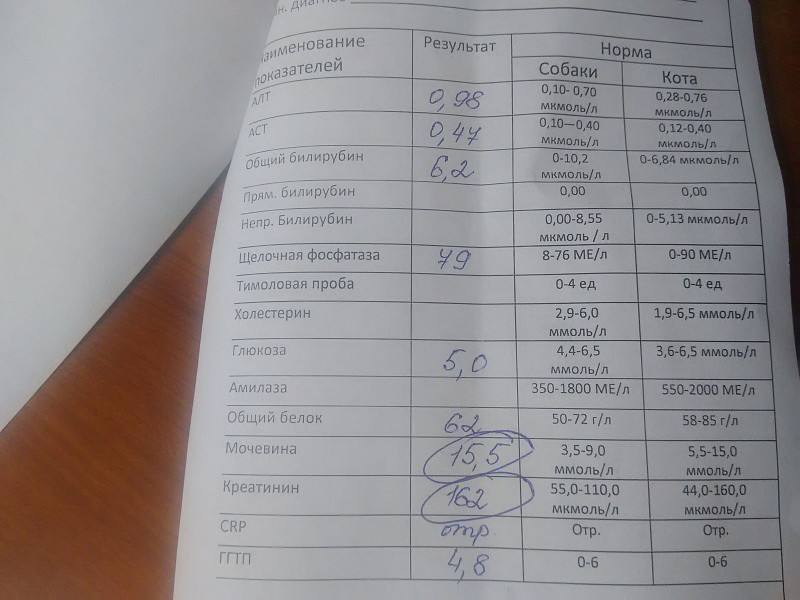 ин. диагноз
Наименование показателей Результат Норма
Собаки Кота
АЛТ 0,98 0,10- 0,70 мкмоль/л 0,28-0,76 мкмоль/л
АСТ 0,47 0,10—0,40 мкмоль/л 0,12-0,40 мкмоль/л
Общий билирубин 6,2 0-10,2 мкмоль/л 0-6,84 мкмоль/л
Прям. билирубин 0,00 0,00
Непр. Билирубин 0,00-8,55 мкмоль / л 0-5,13 мкмоль/л
Щелочная фосфатаза 79 8-76 МЕ/л 0-90 МЕ/л
Тимоловая проба 0-4 ед 0-4 ед
Холестерин 2,9-6,0 ммоль/л 1,9-6,5 ммоль/л
Глюкоза 5,0 4,4-6,5 ммоль/л 3,6-6,5 ммоль/л
Амилаза 350-1800 МЕ/л 550-2000 МЕ/л
Общий белок 62 50-72 г/л 58-85 г/л
Мочевина 15,5 3,5-9,0 ммоль/л 5,5-15,0 ммоль/л
Креатинин 162 55,0-110,0 мкмоль/л 44,0-160,0 мкмоль/л
CRP отр Отр. Отр.
ГГТП 4,8 0-6 0-6